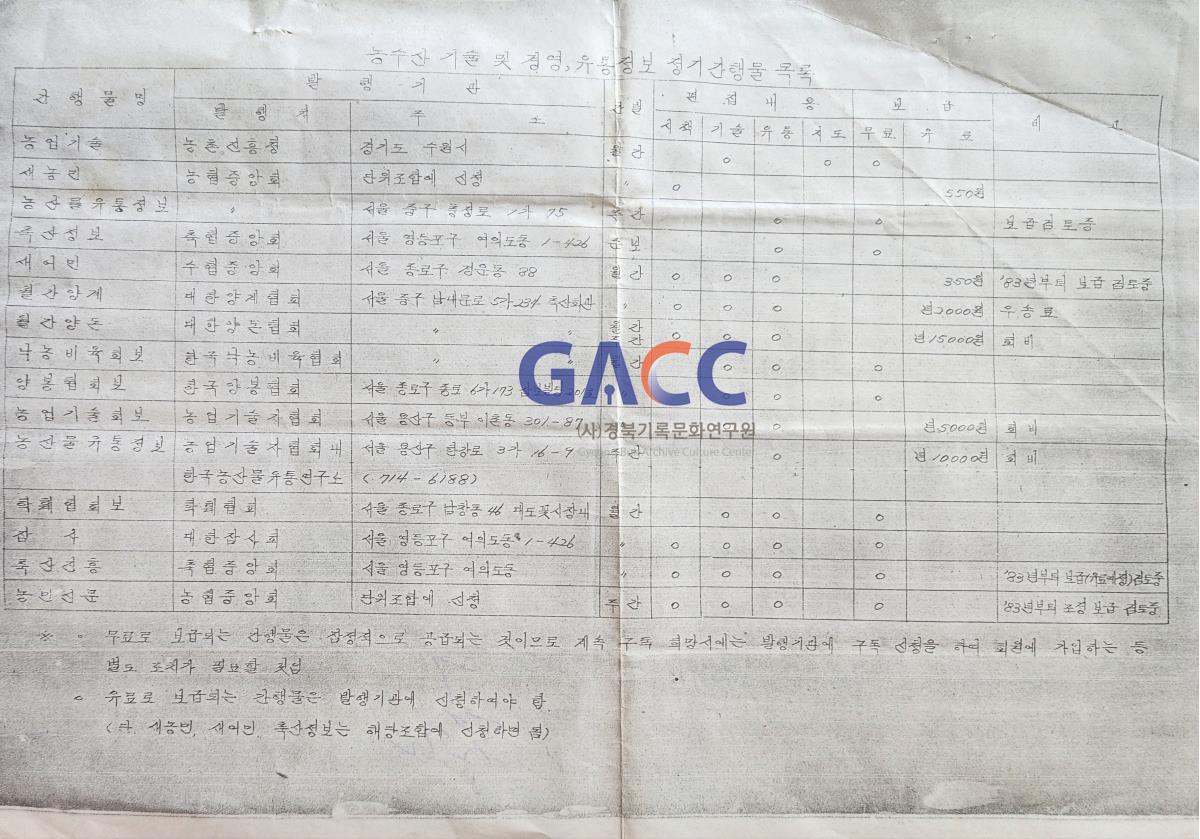 농수산 기술 및 경영, 유통정보 정기간행물 목록
간행물명 발행기관 간별 편집내용 보급 비고
발행처 주소 시책 기술 유통 지도 무료 유료
농업기술 농촌진흥청 경기도 수원시 월간 ○ ○ ○
새농민 농협중앙회 단위조합에 신청 〃 ○ 550원
농산물유통정보 〃 서울 중구 충정로 1가 75 주간 ○ ○ 보급검토중
축산정보 축협중앙회 서울 영등포구 여의도동 1-426 순보 ○ ○
새어민 수협중앙회 서울 종로구 경운동 88 월간 ○ ○ ○ 350원 '83년부터 보급 검토중
월간양계 대한양계협회 서울 중구 남대문로 5가 234 축산회관 〃 ○ ○ ○ 년2000원 우송료
월간양돈 대한양돈협회 〃 〃 월간 ○ ○ ○ 년15000원 회비
낙농비육회보 한국낙농비육협회 〃 〃 월간 ○ ○ ○
양봉협회보 한국양봉협회 서울 종로구 종로 6가 173 301호 〃 ○ ○ ○
농업기술회보 농업기술자협회 서울 용산구 동부이촌동 301-87 ○ 년5000원 회비
농산물유통정보 농업기술자협회내 서울 용산구 한강로 3가 16-9 주간 ○ 년10,000원 회비
한국농산물유통연구소 (714-6188)
화훼협회보 화훼협회 서울 종로구 남창동 46 대도꽃시장내 월간 ○ ○ ○
잠사 대한잠사회 서울 영등포구 여의도동 1-426 〃 ○ ○ ○ ○
축산진흥 축협중앙회 서울 영등포구 여의도동 〃 ○ ○ ○ ○ '83년부터 보급(유료예정)검토중
농민신문 농협중앙회 단위조합에 신청 주간 ○ ○ ○ ○ '83년부터 조정 보급 검토중
※ ○ 무료로 보급되는 간행물은 잠정적으로 공급되는 것이므로 계속 구독 희망시에는 발행기관에 구독 신청을 하여 회원에 가입하는 등
별도 조치가 필요할 것임
○ 유료로 보급되는 간행물은 발행기관에 신청하여야 함.
(단, 새농민, 새어민, 축산정보는 해당조합에 신청하면 됨)
GACC
(사)경북기록문화연구원
GyeongBuk Archive Culture Center